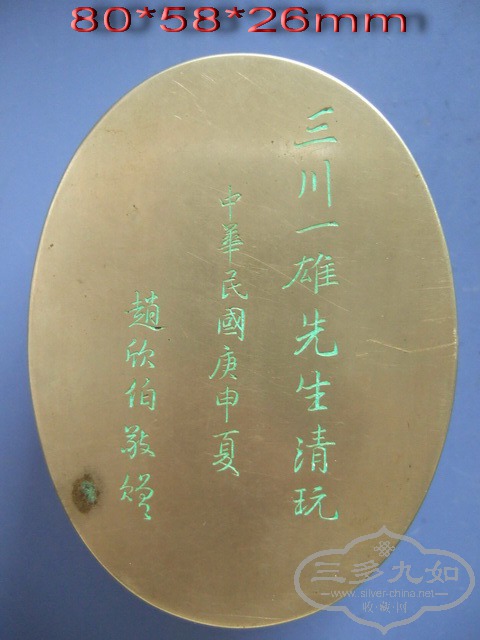 80*58*26mm
三川一雄先生清玩
中華民國庚申夏
趙欣伯敬贈
三多九如
www.silver-china.net
收藏网